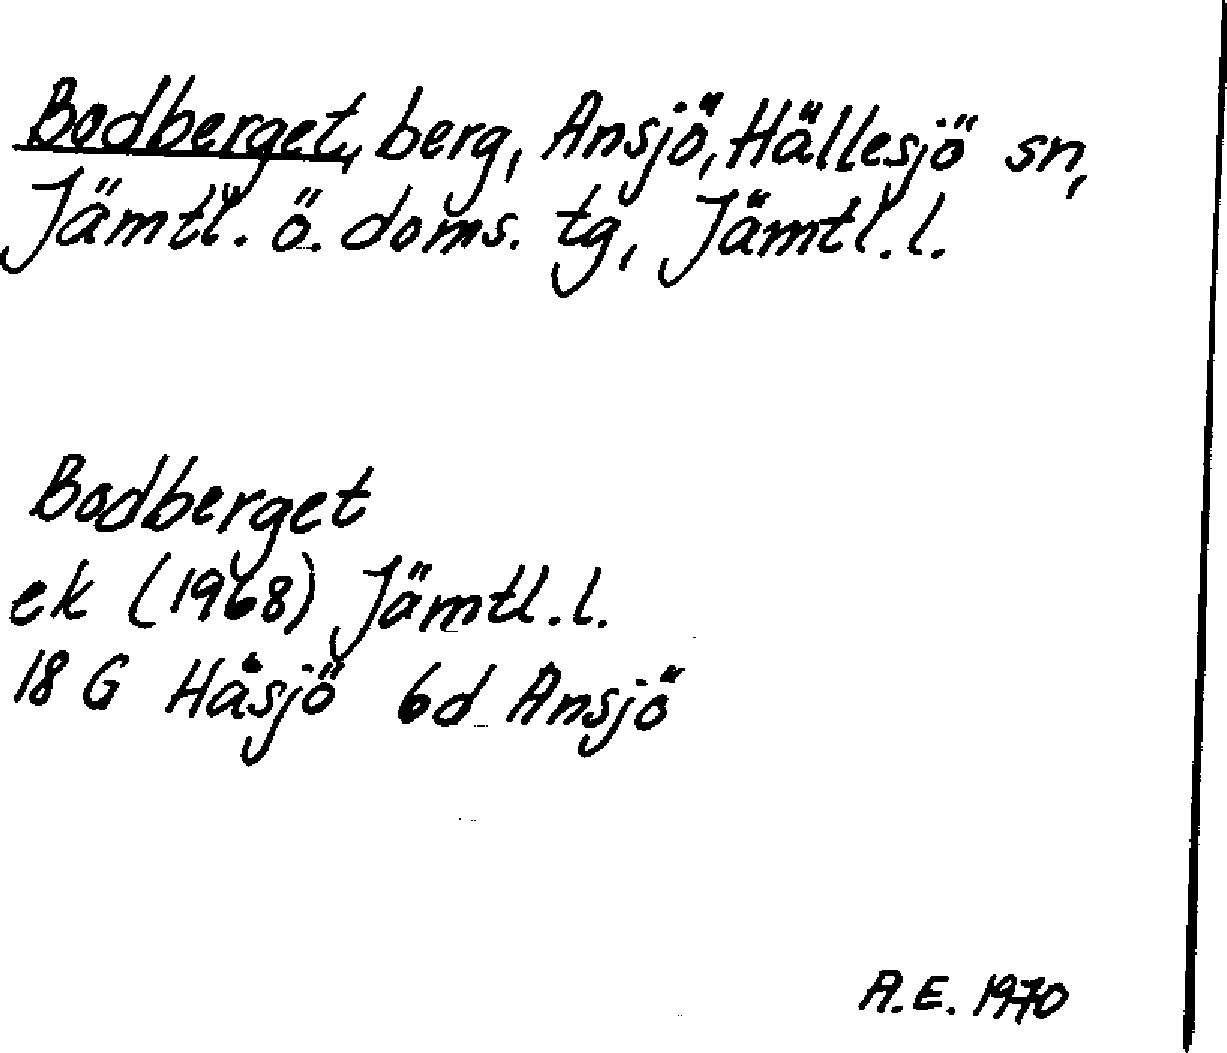 Bodberget, berg, Ansjö, Hällesjö sn,
Jämtl. ö. doms. tg, Jämtl. l.
Bodberget
ek (1968) Jämtl. l.
18 G Håsjö 6d Ansjö
A.E. 1970